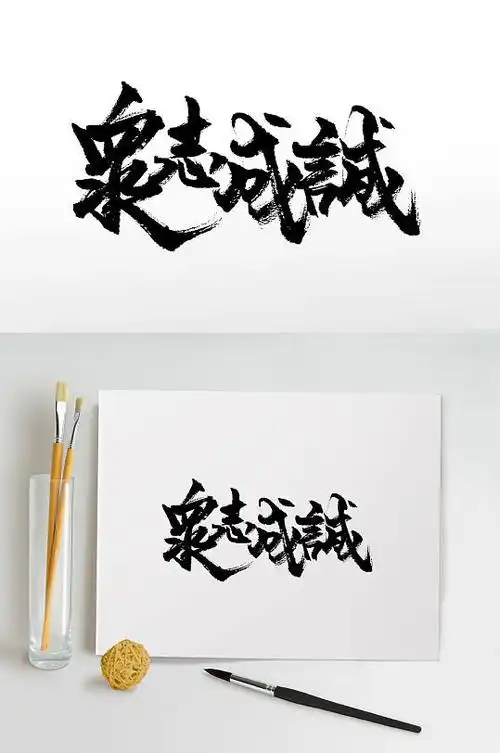 衆志成誠
衆志成誠